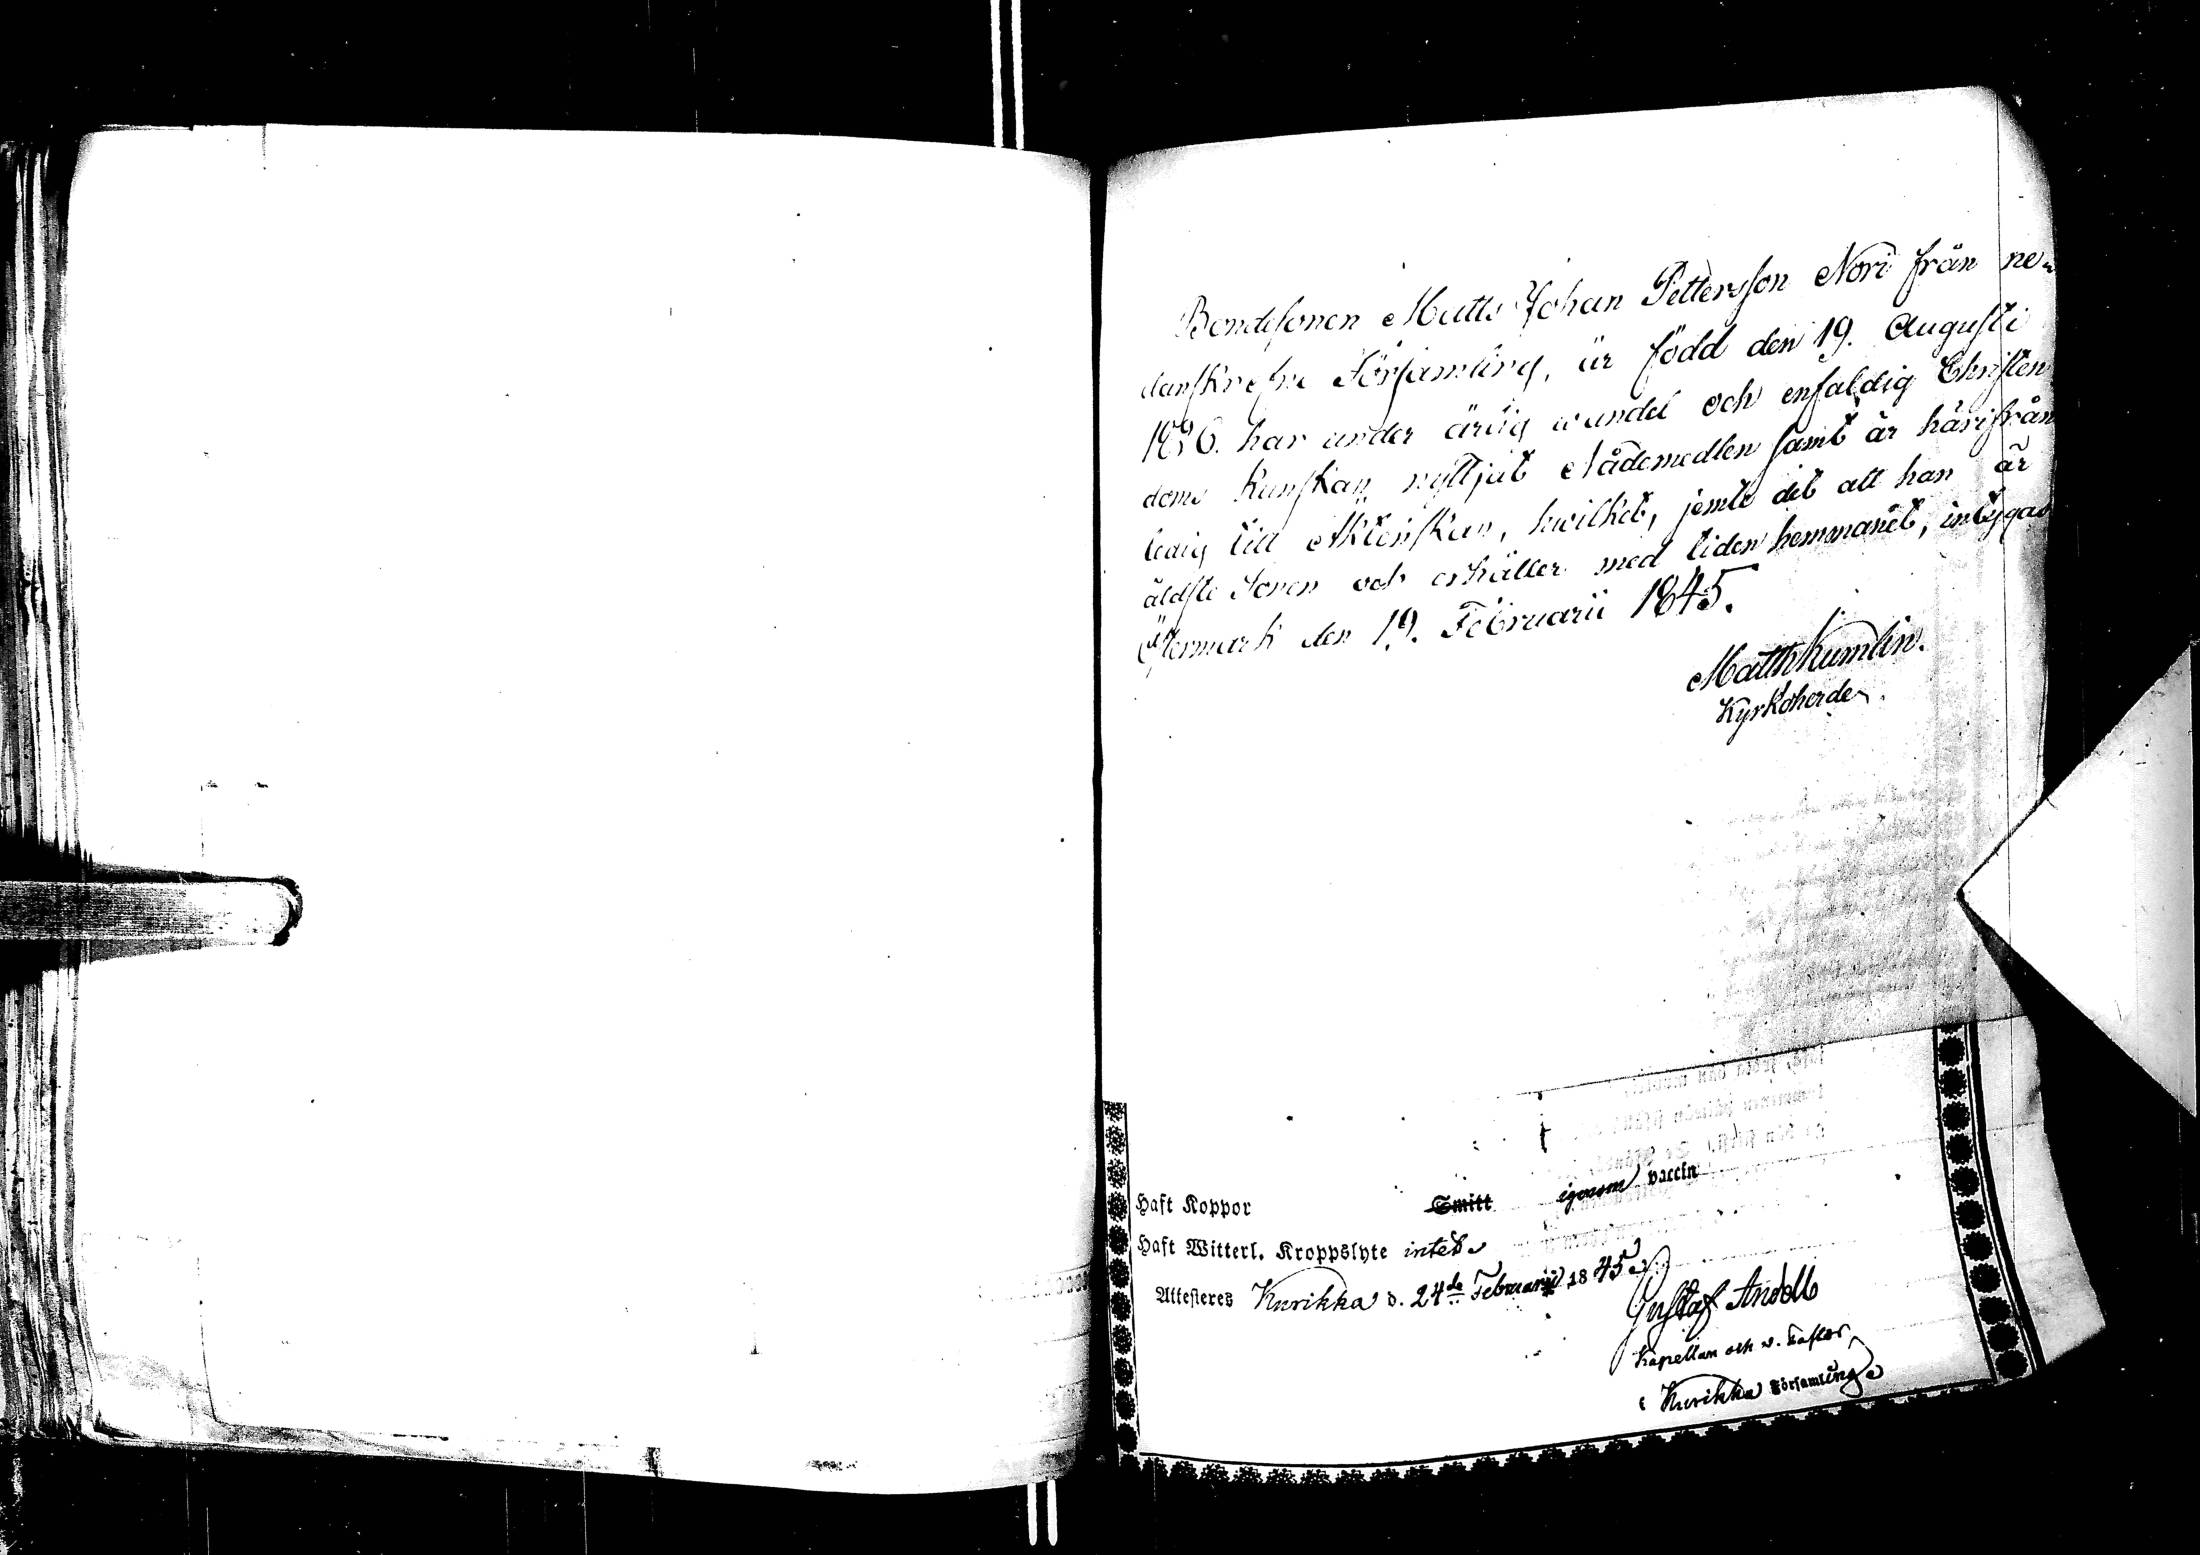 Bondesonen Matts Johan Pettersson Nori från ne-
danskrefne Församling, är född den 19. Augusti
18 6. har under ärlig wandel och enfaldig Christen
doms kunskap nyttjat Nådemedlen samt är härifrån
ledig till Äktenskap, hwilket, jemte det att han är
äldste Sonen och erhåller med tiden hemmanet, intygas
Östermark den 19. Februarii 1845.
Matth Kumlin.
Kyrkoherde.
Haft Koppor Smitt igenom vaccin
Haft Witterl. Kroppslyte intet
Attesteres Kurikka d. 24de Februarii 1845
Gustaf Andell
Kapellan och v. Pastor
i Kurikka Församling